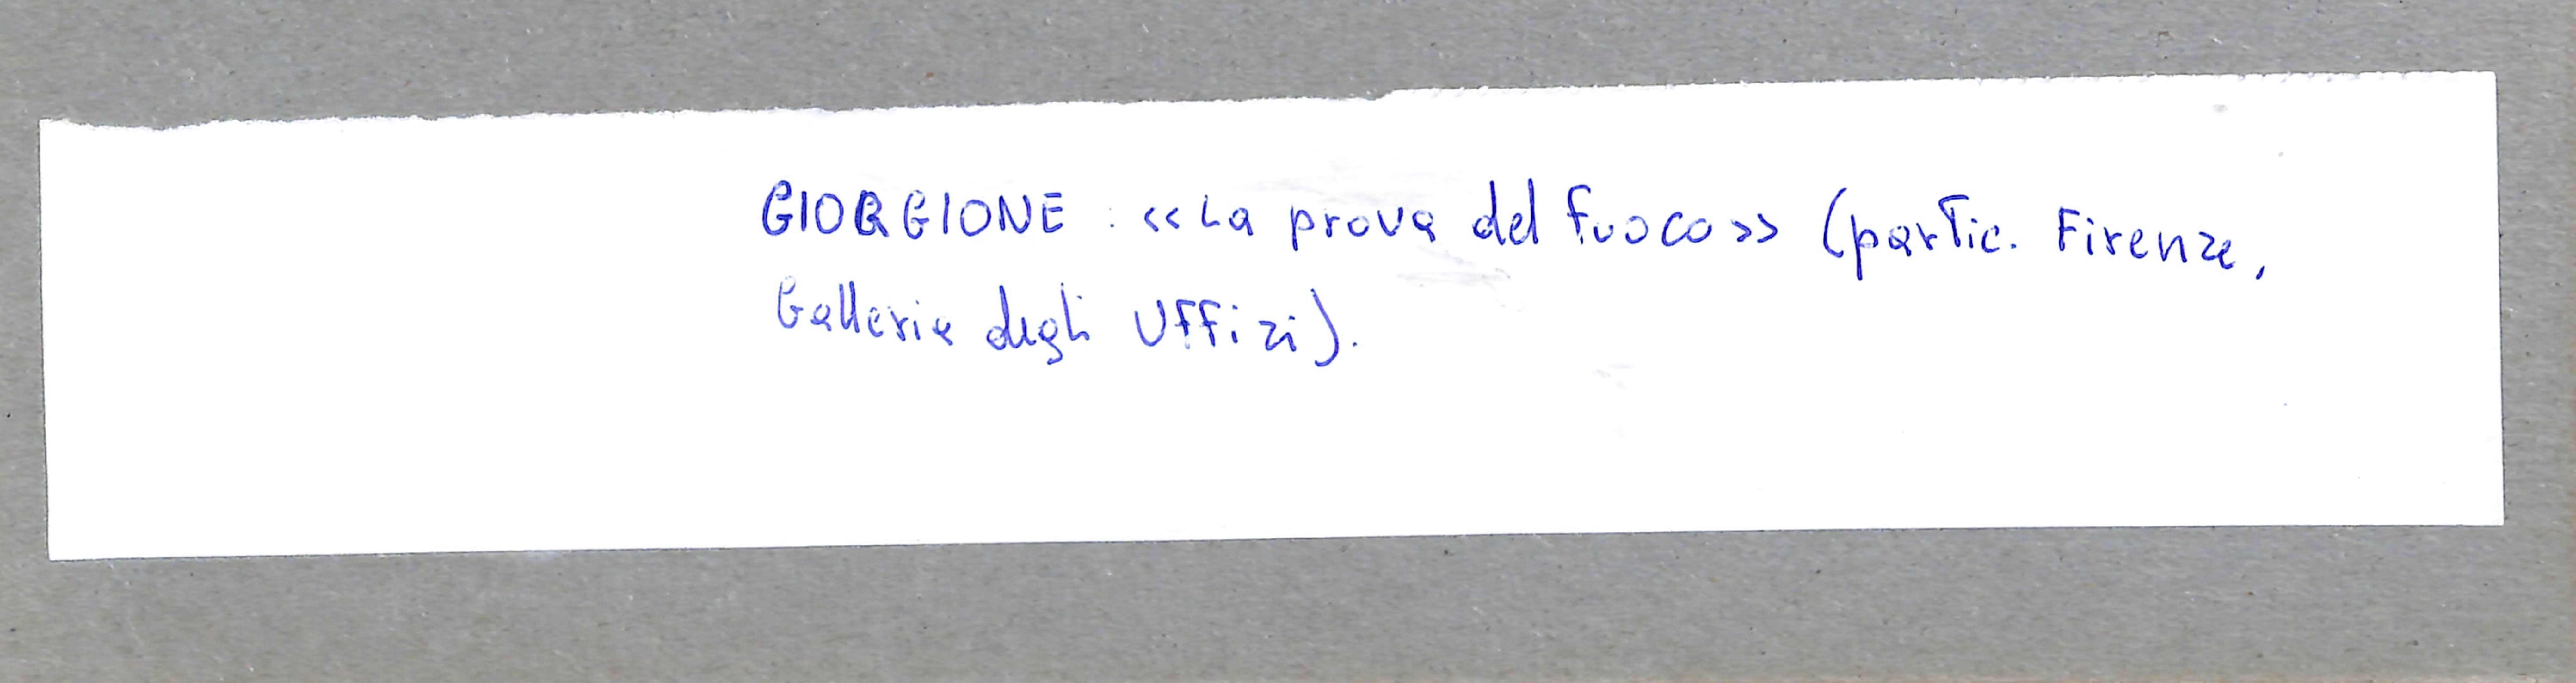 GIORGIONE : «La prova del fuoco» (partic. Firenze,
Galleria degli Uffizi).